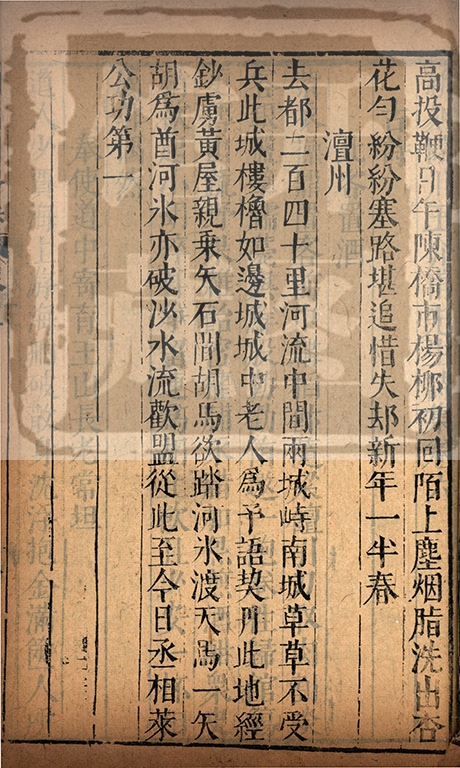 高投鞭日午陳僑市楊柳初回陌上塵烟脂洗出杏
花勻紛紛塞路堪追惜失却新年一半春
澶州
去都二百四十里河流中間兩城峙南城草草不受
兵此城樓櫓如邊城城中老人為予語契丹此地經
鈔虜黃屋親乗矢石間胡馬欲踏河氷渡天馬一矢
胡為酋河氷亦破沙水流歡盟從此至今日丞相萊
公功第一